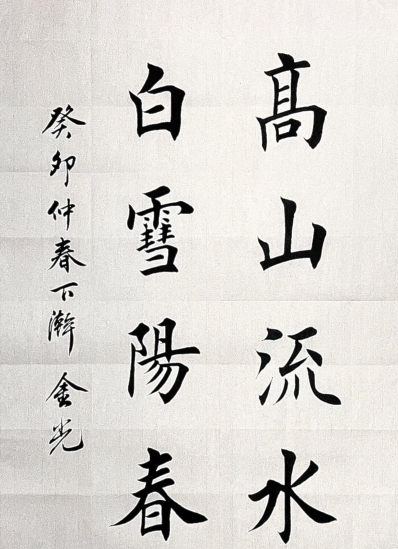 髙山流水
白雪陽春
癸卯仲春下澣 金光